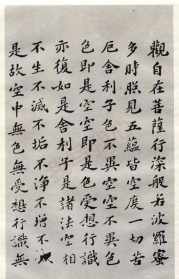 觀自在菩薩行深般若波羅蜜
多時照見五蘊皆空度一切苦
厄舍利子色不異空空不異色
色即是空空即是色受想行識
亦復如是舍利子是諸法空相
不生不滅不垢不淨不增不減
是故空中無色無受想行識無